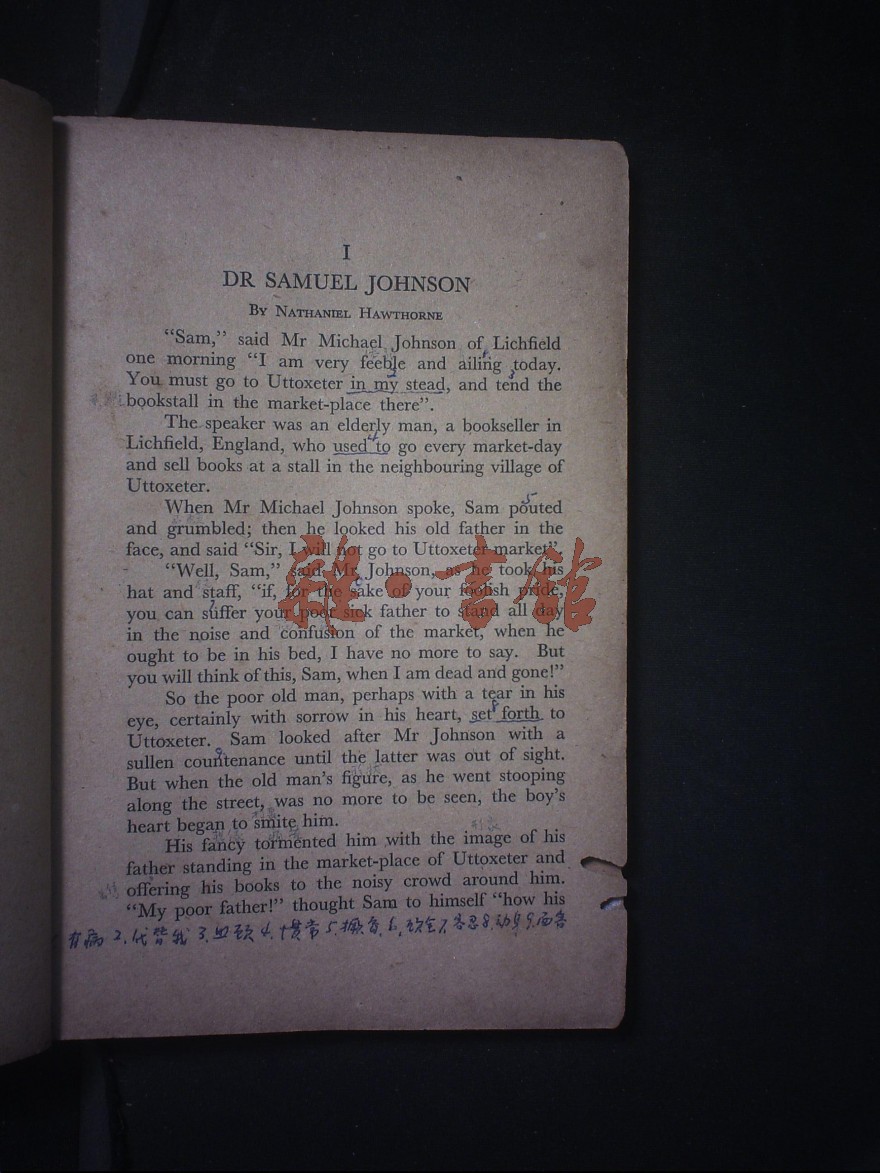 I
DR SAMUEL JOHNSON
By Nathaniel Hawthorne
“Sam,” said Mr Michael Johnson of Lichfield
one morning “I am very feeble and ailing today.
You must go to Uttoxeter in my stead, and tend the
bookstall in the market-place there”.
The speaker was an elderly man, a bookseller in
Lichfield, England, who used to go every market-day
and sell books at a stall in the neighbouring village of
Uttoxeter.
When Mr Michael Johnson spoke, Sam pouted
and grumbled; then he looked his old father in the
face, and said “Sir, I will not go to Uttoxeter market”.
“Well, Sam,” said Mr Johnson, as he took his
hat and staff, “if, for the sake of your foolish pride,
you can suffer your poor sick father to stand all day
in the noise and confusion of the market, when he
ought to be in his bed, I have no more to say. But
you will think of this, Sam, when I am dead and gone!”
So the poor old man, perhaps with a tear in his
eye, certainly with sorrow in his heart, set forth to
Uttoxeter. Sam looked after Mr Johnson with a
sullen countenance until the latter was out of sight.
But when the old man’s figure, as he went stooping
along the street, was no more to be seen, the boy’s
heart began to smite him.
His fancy tormented him with the image of his
father standing in the market-place of Uttoxeter and
offering his books to the noisy crowd around him.
“My poor father!” thought Sam to himself “how his
有病 2.代替我 3.照顾 4.惯常 5.撅着 6. 7.容忍 8.动身 9.面容
雜·書館